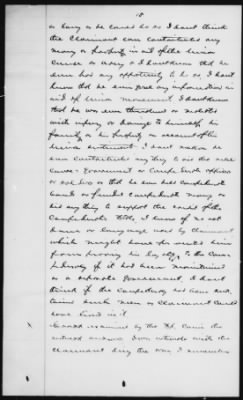 or Navy or he could do so I dont think
the Claimant ever contributed any
money or property in aid of the Union
cause or Army &
ever had any opportunity to do so, I dont
know that he ever gave any information in
aid of Union movement I dont know
that he was ever threatened or molested
with injury or damage to himself, his
family or his property on account of his
Union sentiments I dont know he
ever contributed any thing to aid the rebel
cause Government or Confederate officers
or soldiers or that he ever had confederate
bonds or funded confederate money or
did any thing to support the credit of the
Confederate States, I know of no act
done or language used by Claimant
which might have prevented him
from proving his loyalty to the Cause
if it had been maintained
as a separate Government, I dont
think if the Confederacy had been
such man as Claimant could
have lived in it
Cross examined by the Sp. Com'r the
witness answers I was intimate with the
Claimant during the war I